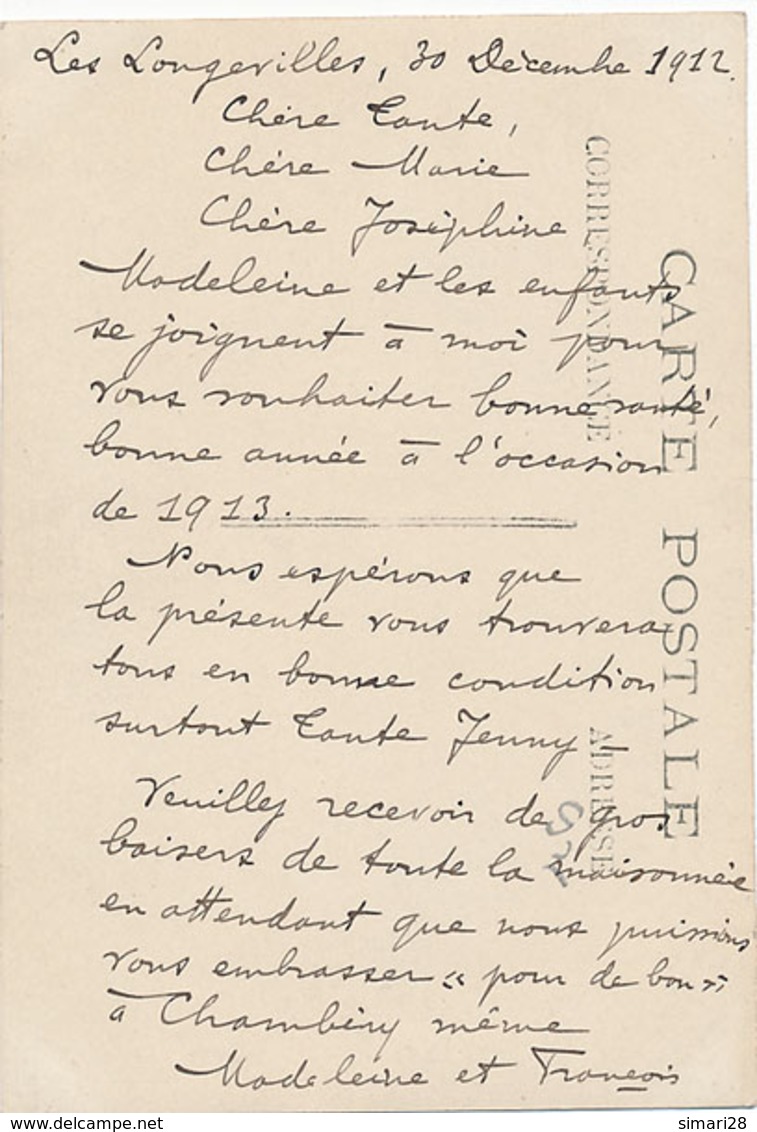 Les Longevilles, 30 Décembre 1912.
Chère Tante,
Chère Marie
Chère Joséphine
Madeleine et les enfants
se joignent à moi pour
vous souhaiter bonne santé,
bonne année à l'occasion
de 1913.
Nous espérons que
la présente vous trouvera
tous en bonne condition
surtout Tante Jenny!
Veuillez recevoir de gros
baisers de toute la maisonnée
en attendant que nous puissions
vous embrasser "pour de bon"
à Chambéry même
Madeleine et François
CARTE POSTALE
CORRESPONDANCE
ADRESSE
delcampe.net
simari28